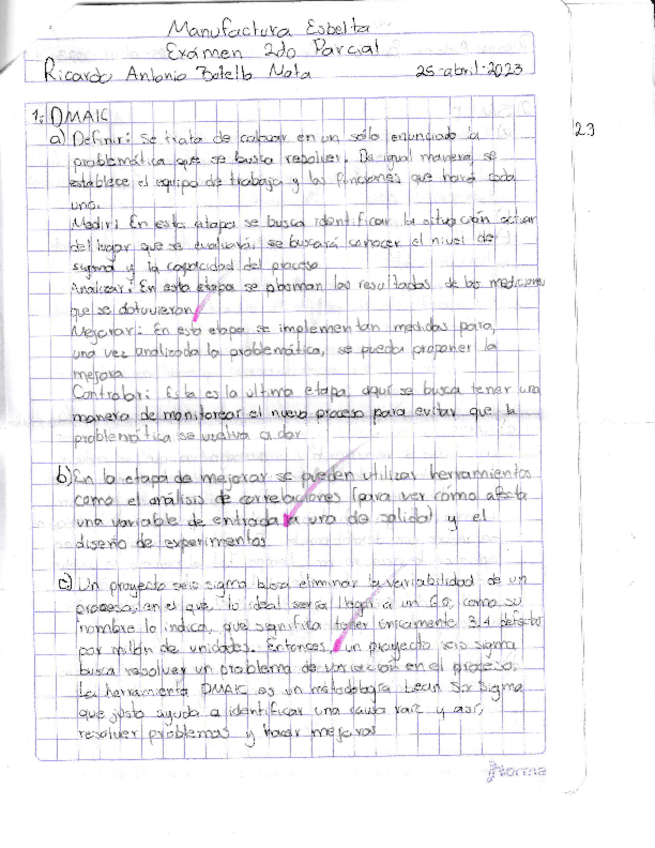 Manufactura Esbelta
Exámen 2do Parcial
Ricardo Antonio Botello Mata 25-abril-2023
23
1. DMAIC
a) Definir: Se trata de colocar en un sólo enunciado la
problemática que se busca resolver. De igual manera se
establece el equipo de trabajo y las funciones que hará cada
uno.
Medir: En esta etapa se busca identificar la situación actual
del lugar que se evaluará, se buscará conocer el nivel de
sigma y la capacidad del proceso
Analizar: En esta etapa se plasman los resultados de las mediciones
que se obtuvieron
Mejorar: En esta etapa se implementan medidas para,
una vez analizada la problemática, se pueda proponer la
mejora
Controlar: Esta es la última etapa, aquí se busca tener una
manera de monitorear el nuevo proceso para evitar que la
problemática se vuelva a dar
b) En la etapa de mejorar se pueden utilizar herramientas
como el análisis de correlaciones (para ver como afecta
una variable de entrada a una de salida) y el
diseño de experimentos
c) Un proyecto seis sigma busca eliminar la variabilidad de un
proceso, en el que lo ideal sería llegar a un 6σ, como su
nombre lo indica, que significa tener únicamente 3.4 defectos
por millón de unidades. Entonces, un proyecto seis sigma
busca resolver un problema de variación en el proceso.
La herramienta DMAIC es un metodología Lean Six Sigma
que justo ayuda a identificar una causa raíz y así,
resolver problemas y hacer mejoras
Norma